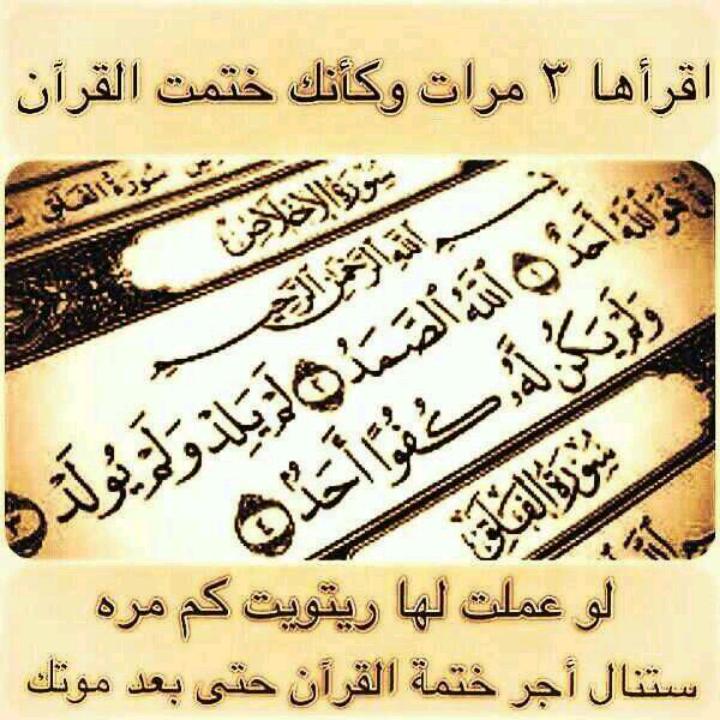 اقرأها ٣ مرات وكأنك ختمت القرآن
سورة الفلق
سُورَةُ الإِخْلَاصِ
بِسْمِ اللَّهِ الرَّحْمَٰنِ الرَّحِيمِ
هُوَ اللَّهُ أَحَدٌ ١ اللَّهُ الصَّمَدُ ٢ لَمْ يَلِدْ وَلَمْ يُولَدْ ٣
وَلَمْ يَكُن لَّهُ كُفُوًا أَحَدٌ ٤
سُورَةُ الفَلَقِ
لو عملت لها ريتويت كم مره
ستنال أجر ختمة القرآن حتى بعد موتك